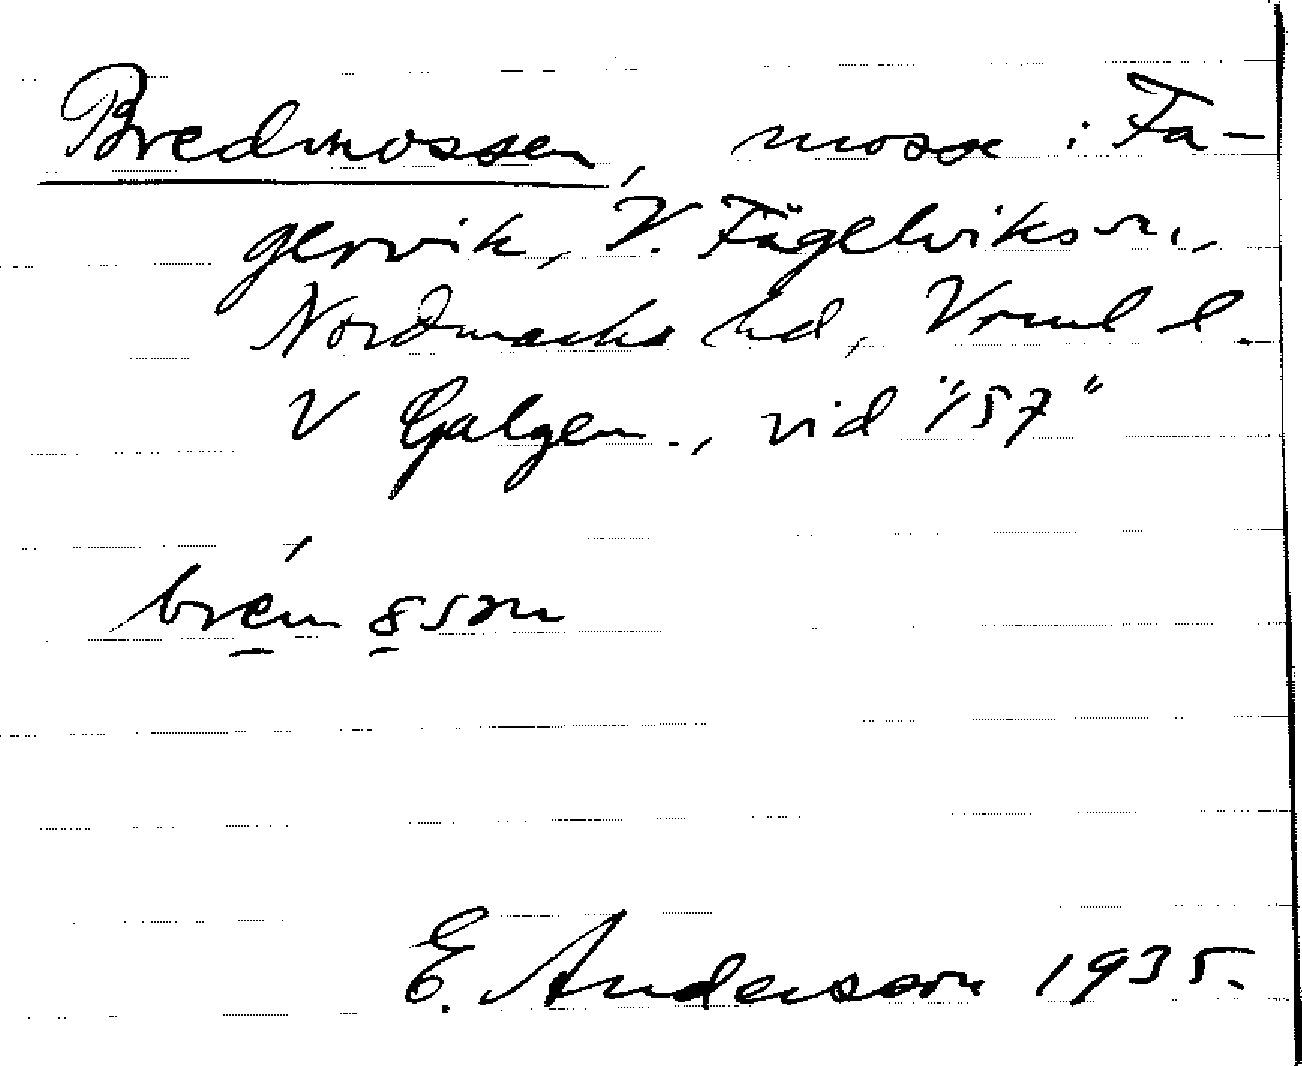 Bredmossen, mosse i Fa-
gervik, V. Fågelviks sn.,
Nordmarks hd, Vrml l.
V Galgen., vid "157"
E. Andersson 1935.